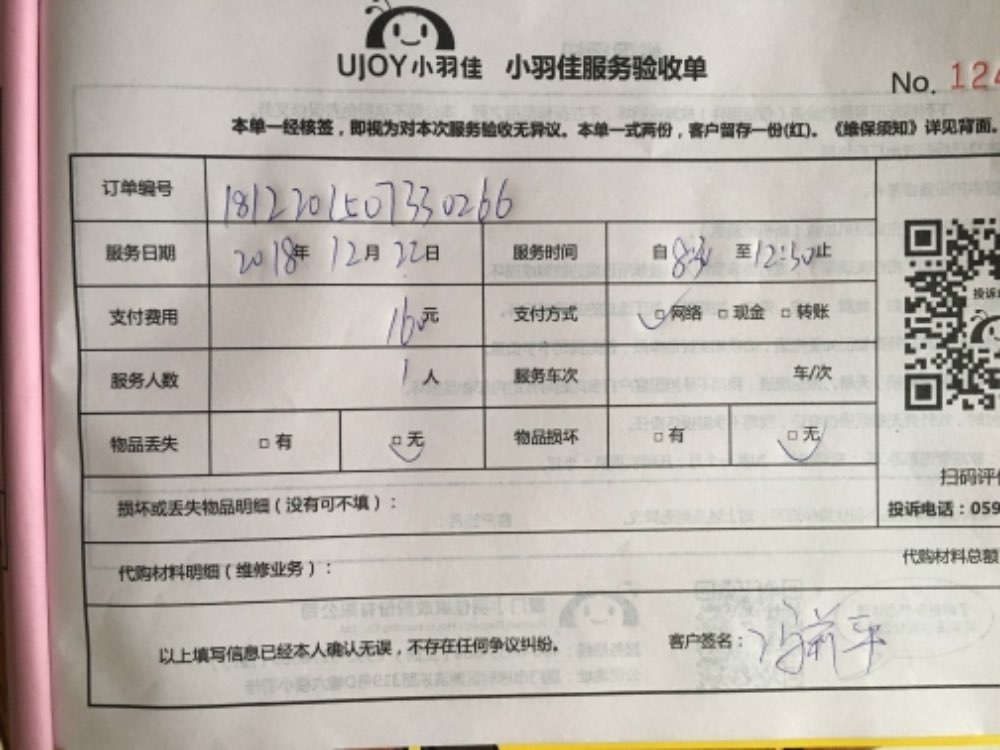 UJOY小羽佳 小羽佳服务验收单
No. 124
本单一经核签，即视为对本次服务验收无异议。本单一式两份，客户留存一份(红)。《维保须知》详见背面。
订单编号 1812201507330266
服务日期 2018年 12月 22日 服务时间 自8:30 至12:30止
支付费用 160元 支付方式 □网络 □现金 □转账
投诉
服务人数 1人 服务车次 车/次
物品丢失 □有 □无 物品损坏 □有 □无
扫码评
损坏或丢失物品明细（没有可不填）：
投诉电话：059
代购材料明细（维修业务）：
代购材料总额
以上填写信息已经本人确认无误，不存在任何争议纠纷。 客户签名：